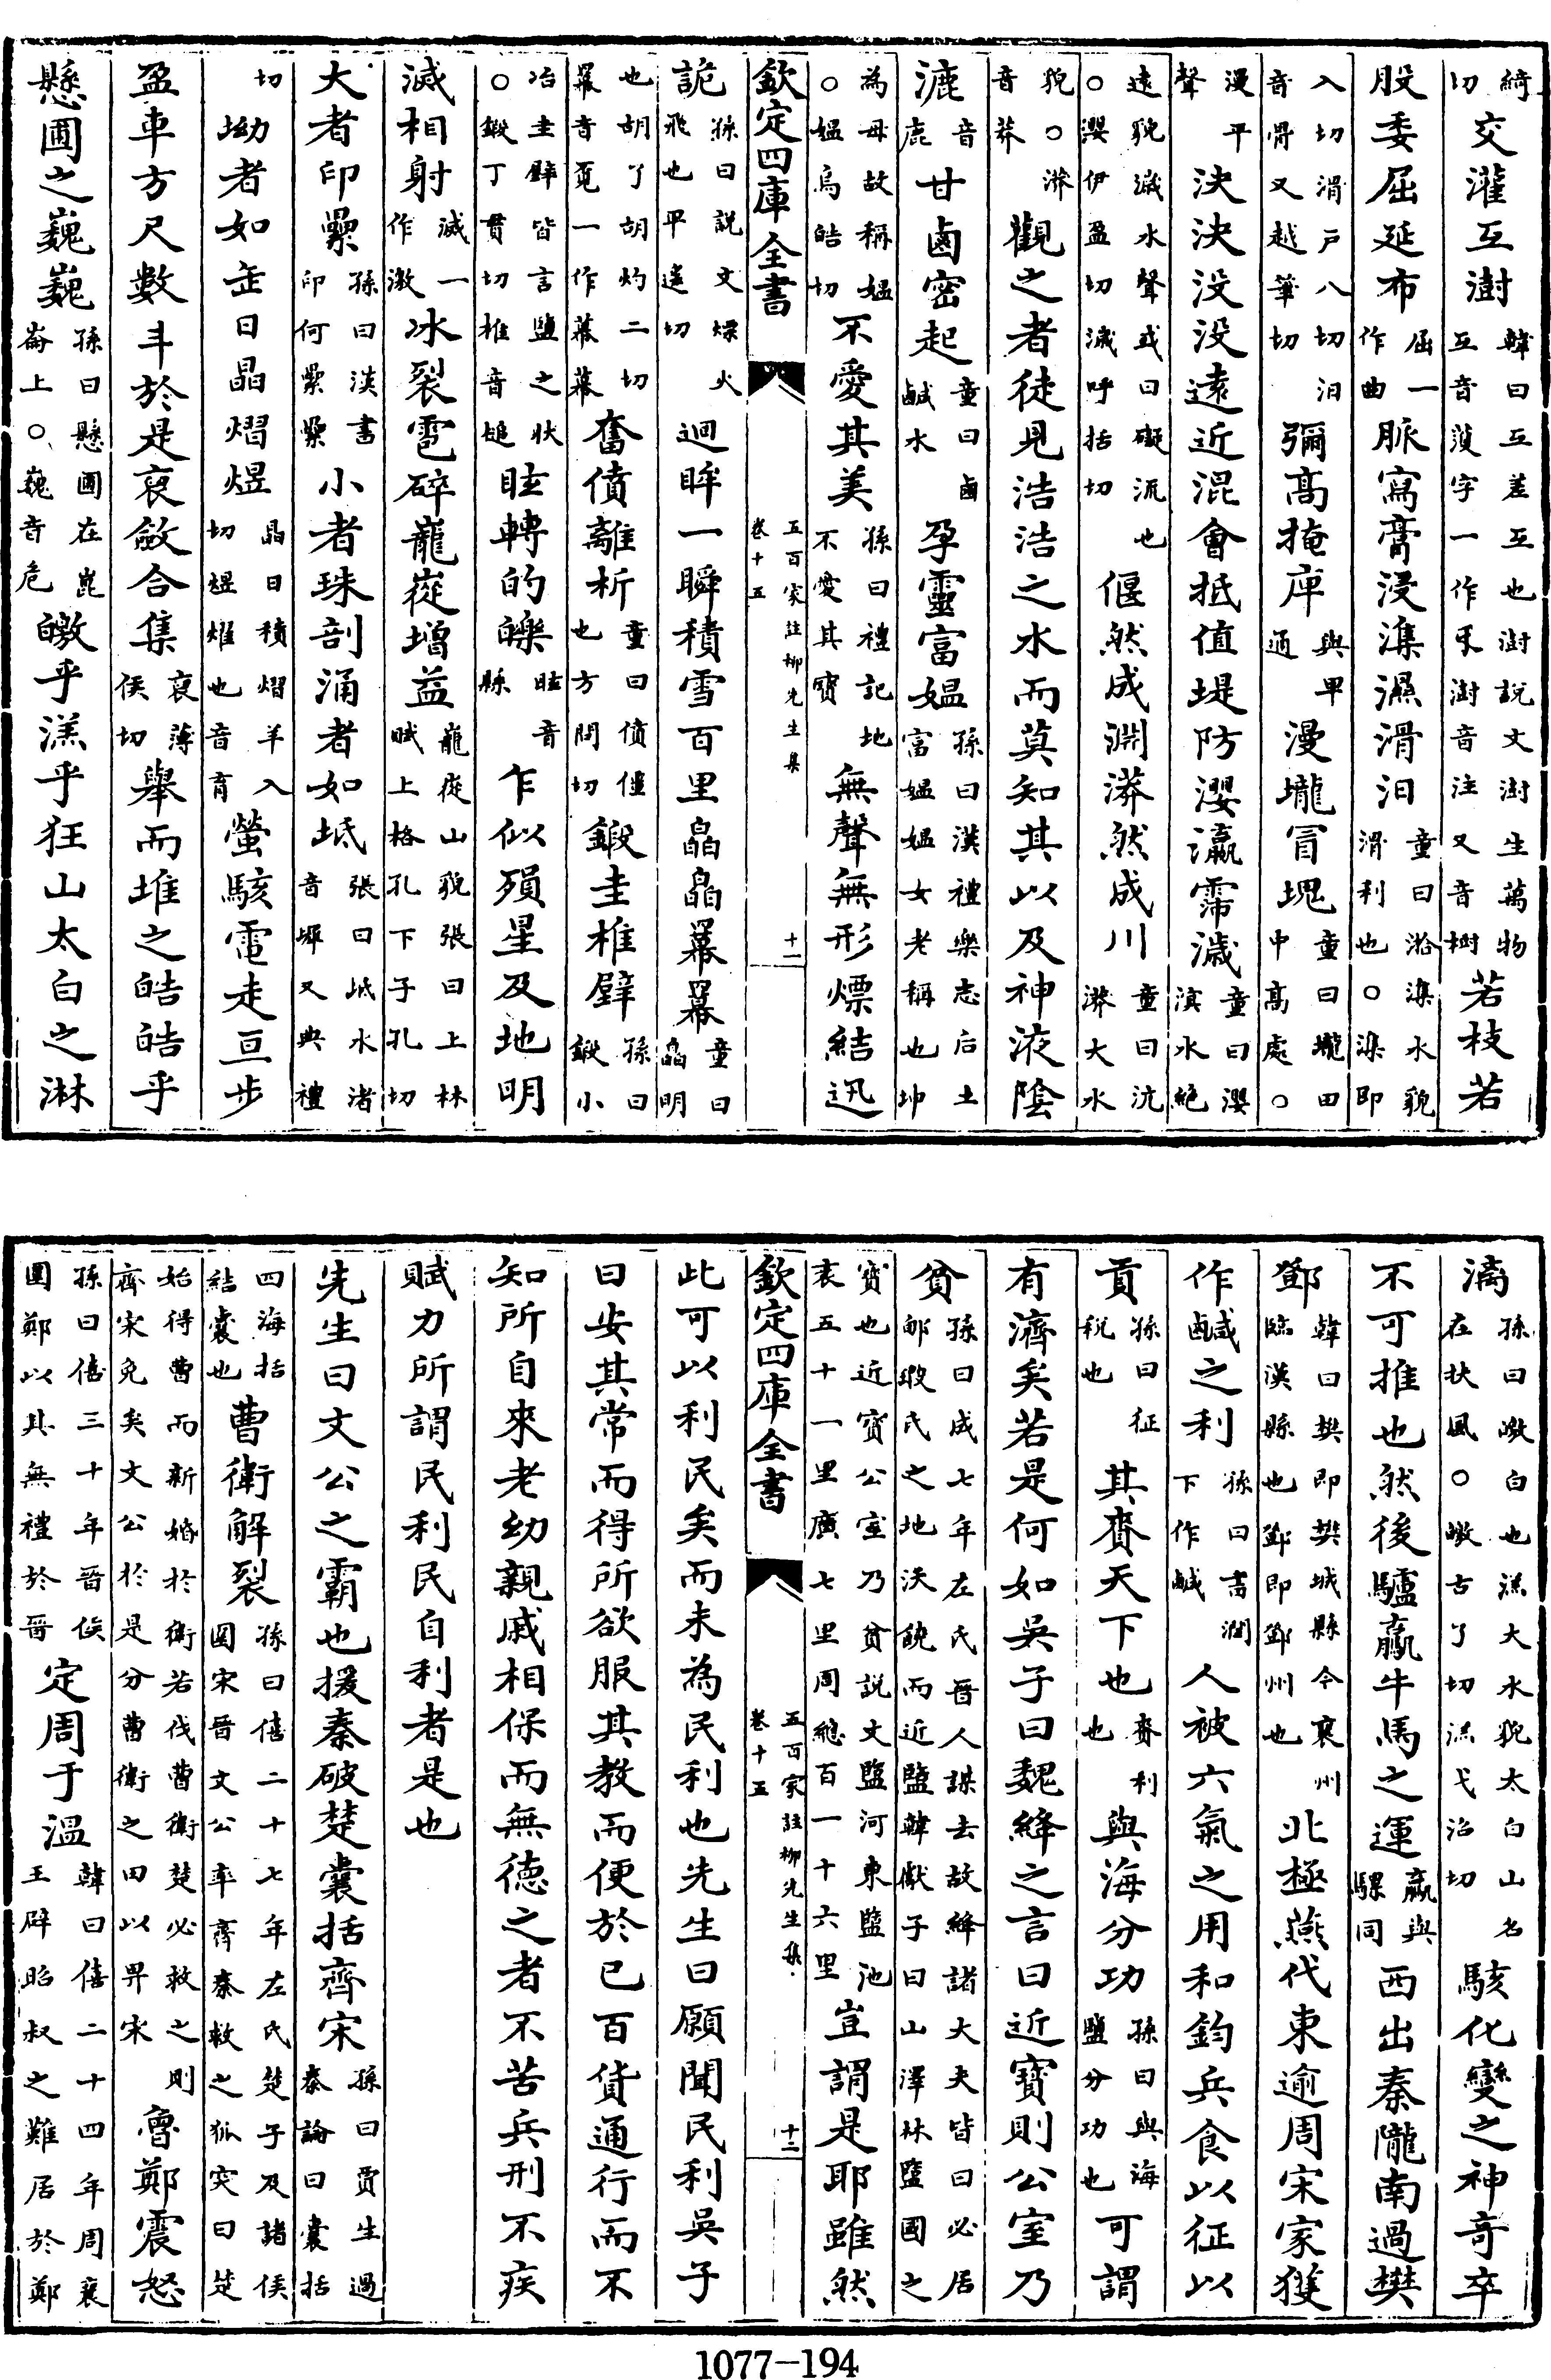 綺切交灌互澍韓曰互差互也澍說文澍生萬物互音濩字一作㸦澍音注又音樹若枝若
股委屈延布屈一作曲脈寫膏浸潗濕滑汩童曰㴔潗水貌滑利也○潗即
入切滑戶八切汩音骨又越筆切彌高掩庳與卑通漫壠冒塊童曰壠田中高處○
漫平聲決決没没遠近混會抵值堤防瀴瀛霈濊童曰瀴溟水絶
遠貌濊水聲或曰礙流也○瀴伊盈切濊呼括切偃然成淵漭然成川童曰沆漭大水
貌○漭音莽觀之者徒見浩浩之水而莫知其以及神液陰
漉音鹿甘鹵密起童曰鹵鹹水孕靈富媪孫曰漢禮樂志后土富媪媪女老稱也坤
為母故稱媪○媪烏皓切不愛其美孫曰禮記地不愛其寳無聲無形熛結迅
欽定四庫全書 五百家註柳先生集卷十五 十一
詭孫曰說文熛火飛也平遙切迴眸一瞬積雪百里皛皛羃羃童曰皛明
也胡了胡灼二切羃音覓一作幕幕奮僨離析童曰僨僵也方問切鍛圭椎璧孫曰鍛小
冶圭璧皆言鹽之狀○鍛丁貫切椎音槌眩轉的皪眩音縣乍似殞星及地明
滅相射滅一作激冰裂雹碎巃嵷增益巃嵷山貌張曰上林賦上格孔下子孔切
大者印纍孫曰漢書印何纍纍小者珠剖涌者如坻張曰坻水渚音墀又典禮
切坳者如缶日晶熠煜晶日積熠羊入切煜燿也音育螢駭電走亘步
盈車方尺數斗於是裒斂合集裒薄侯切舉而堆之皓皓乎
懸圃之巍巍孫曰懸圃在崑崙上○巍音危皦乎溔乎狂山太白之淋
漓孫曰皦白也溔大水貌太白山名在扶風○皦古了切溔弋沼切駭化變之神奇卒
不可推也然後驢臝牛馬之運臝與騾同西出秦隴南過樊
鄧韓曰樊即樊城縣今襄州臨漢縣也鄧即鄧州也北極燕代東逾周宋家獲
作鹹之利孫曰書潤下作鹹人被六氣之用和鈞兵食以征以
貢孫曰征稅也其賚天下也賚利也與海分功孫曰與海鹽分功也可謂
有濟矣若是何如吳子曰魏絳之言曰近寶則公室乃
貧孫曰成七年左氏晉人謀去故絳諸大夫皆曰必居郇瑕氏之地沃饒而近鹽韓獻子曰山澤林鹽國之
寶也近寶公室乃貧說文鹽河東鹽池袤五十一里廣七里周緫百一十六里豈謂是耶雖然
欽定四庫全書 五百家註柳先生集卷十五 十二
此可以利民矣而未為民利也先生曰願聞民利吳子
曰安其常而得所欲服其教而便於已百貨通行而不
知所自來老幼親戚相保而無德之者不苦兵刑不疾
賦力所謂民利民自利者是也
先生曰文公之霸也援秦破楚囊括齊宋孫曰賈生過秦論曰囊括
四海括結囊也曹衛解裂孫曰僖二十七年左氏楚子及諸侯圍宋晉文公率齊秦救之狐突曰楚
始得曹而新婚於衛若伐曹衛楚必救之則齊宋免矣文公於是分曹衛之田以畀宋魯鄭震怒
孫曰僖三十年晉侯圍鄭以其無禮於晉定周于溫韓曰僖二十四年周襄王辟昭叔之難居於鄭
1077-194